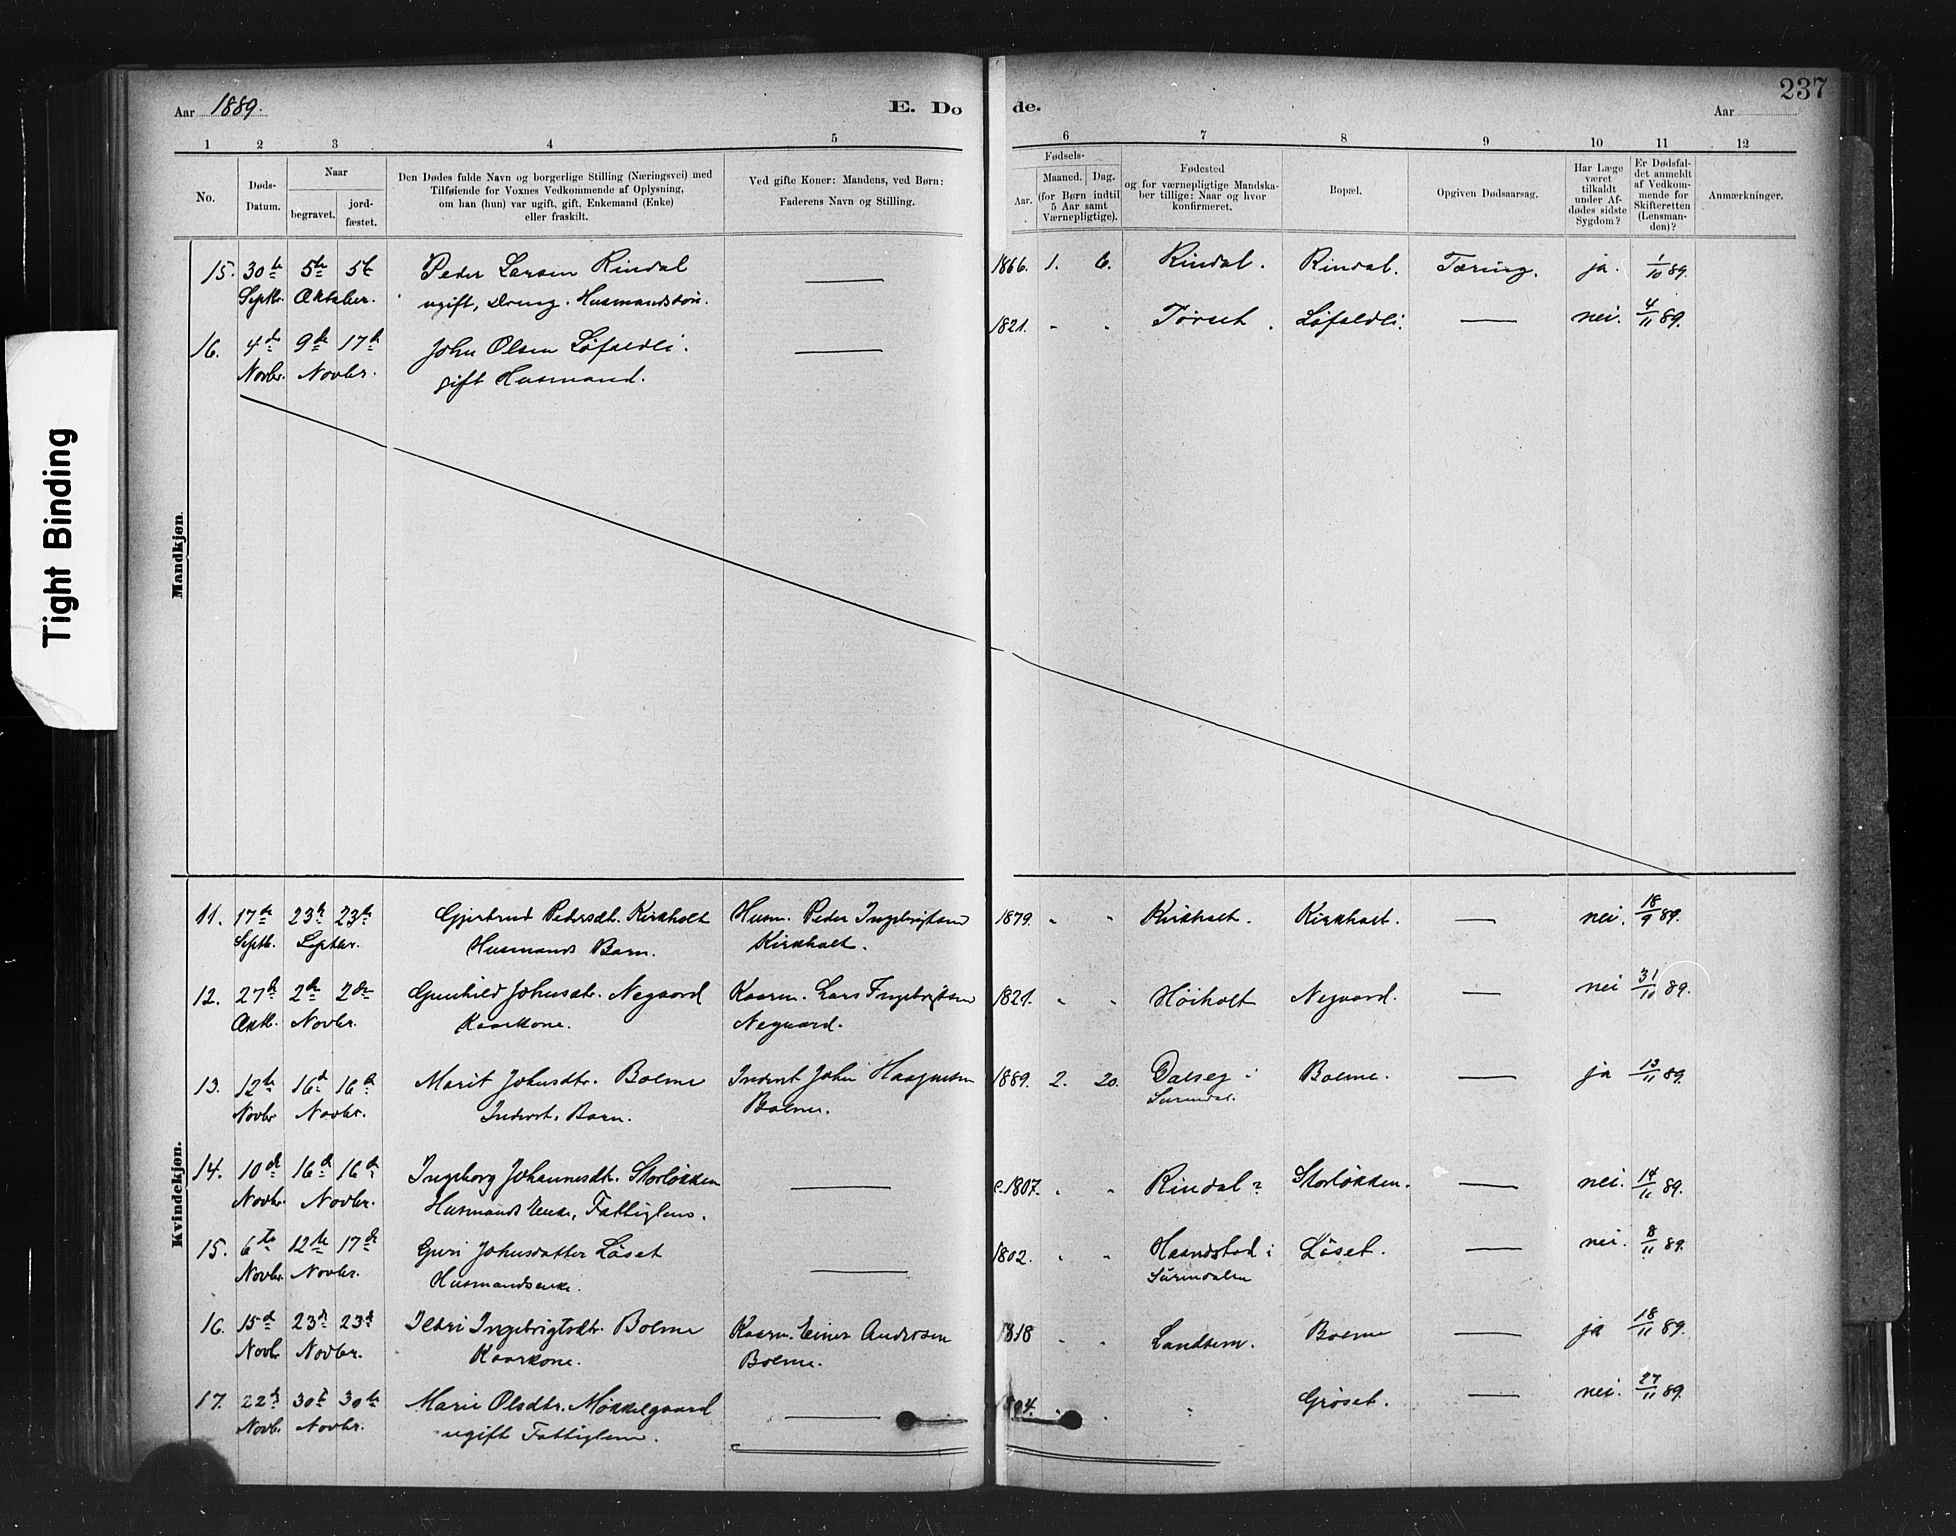 Tight Binding
237
Aar 1889.
E. Dø
de.
Aar
1 2 3 4 5 6 7 8 9 10 11 12
No.
Døds-
Datum.
Naar
begravet.
jord-
fæstet.
Den Dødes fulde Navn og borgerlige Stilling (Næringsvei) med
Tilføiende for Voxnes Vedkommende af Oplysning,
om han (hun) var ugift, gift, Enkemand (Enke)
eller fraskilt.
Ved gifte Koner: Mandens, ved Børn:
Faderens Navn og Stilling.
Fødsels-
Aar.
Maaned. Dag.
(for Børn indtil
5 Aar samt
Værnepligtige).
Fødested
og for værnepligtige Mandska-
ber tillige: Naar og hvor
konfirmeret.
Bopæl.
Opgiven Dødsaarsag.
Har Læge
været
tilkaldt
under Af-
dødes sidste
Sygdom?
Er Dødsfal-
det anmeldt
af Vedkom-
mende for
Skifteretten
(Lensman-
den)?
Anmærkninger.
Mandkjøn.
15. 30te 5te 5te Peder Larsen Rindal — 1866. 1. 6. Rindal. Rindal. Tæring. ja. 1/10 89.
Septbr. Oktober. ugift, Dreng. Husmandssøn.
16. 4de 9de 17de John Olsen Løfaldli. — 1821. - - Tørset. Løfaldli. — nei. 4/11 89.
Novbr. Novbr. gift Husmand.
Kvindekjøn.
11. 17de 23de 23de Gjertrud Pedersdt. Kirkholt Husm. Peder Ingebrigtsen 1879. " " Kirkholt. Kirkholt. — nei. 18/9 89.
Septb. Septbr. Husmands Barn. Kirkholt.
12. 27de 2den 2den Gunhild Johnsdtr. Negaard Kaarm. Lars Ingebrigtsen 1821. - " Høiholt Negaard. — nei 31/10 89.
Oktb. Novbr. Kaarkone. Negaard.
13. 12te 16de 16de Marit Johnsdtr. Bolme Inderst John Haagensen 1889. 2. 20. Dalseg i Bolme. — ja 13/11 89.
Novbr Novbr. Inderst. Barn. Bolme. Surendal.
14. 10de 16de 16de Ingeborg Johannesdtr. Storløkken — c.1807. - " Rindal? Storløkken. — nei. 14/11 89.
Novbr. Novbr. Husmands Enke, Fattiglem.
15. 6te 12te 17de Guri Johnsdatter Løset — 1802. - - Haandstad i Løset. — nei. 8/11 89.
Novbr. Novbr. Husmandsenke. Surendalen
16. 15de 23de 23de Ildri Ingebrigtsdtr. Bolme Kaarm. Einar Andersen 1818 - - Landsem. Bolme — ja 18/11 89.
Novbr Novbr. Kaarkone. Bolme.
17. 22de 30te 30te Marie Olsdtr. Mokkelgaard — 1804. - - " Grøset. — nei. 27/11 89.
Novb. Novbr. ugift Fattiglem.